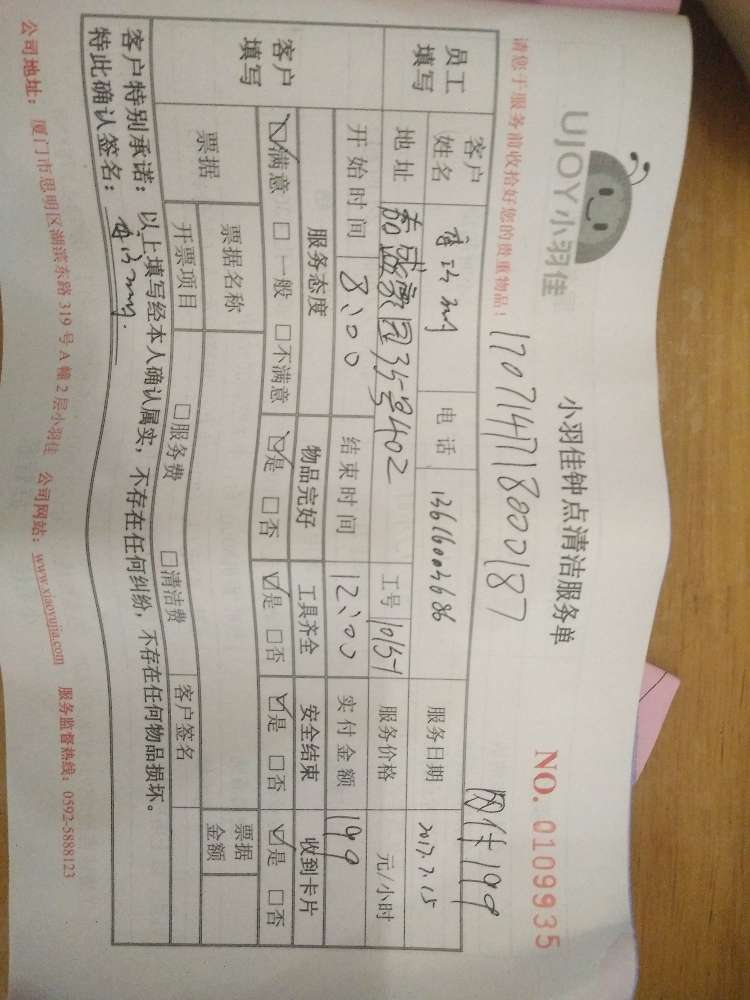 UJOY小羽佳
小羽佳钟点清洁服务单
NO. 0109935
请您于服务前收拾好您的贵重物品！
17071471800187
网付199
员工填写
客户姓名
电话 13616003686
服务日期 2017.7.15
地址 嘉盛家园35号402
工号 10151
服务价格 元/小时
开始时间 8:00
结束时间 12:00
实付金额 199
客户填写
服务态度 物品完好 工具齐全 安全结束 收到卡片
☑满意 □一般 □不满意 ☑是 □否 ☑是 □否 ☑是 □否 ☑是 □否
票据
票据名称
票据金额
开票项目 □服务费 □清洁费 客户签名
客户特别承诺：以上填写经本人确认属实，不存在任何纠纷，不存在任何物品损坏。
特此确认签名：
公司地址：厦门市思明区湖滨东路 319 号 A 幢 2 层小羽佳 公司网站：www.xiaoyujia.com 服务监督热线：0592-5888123